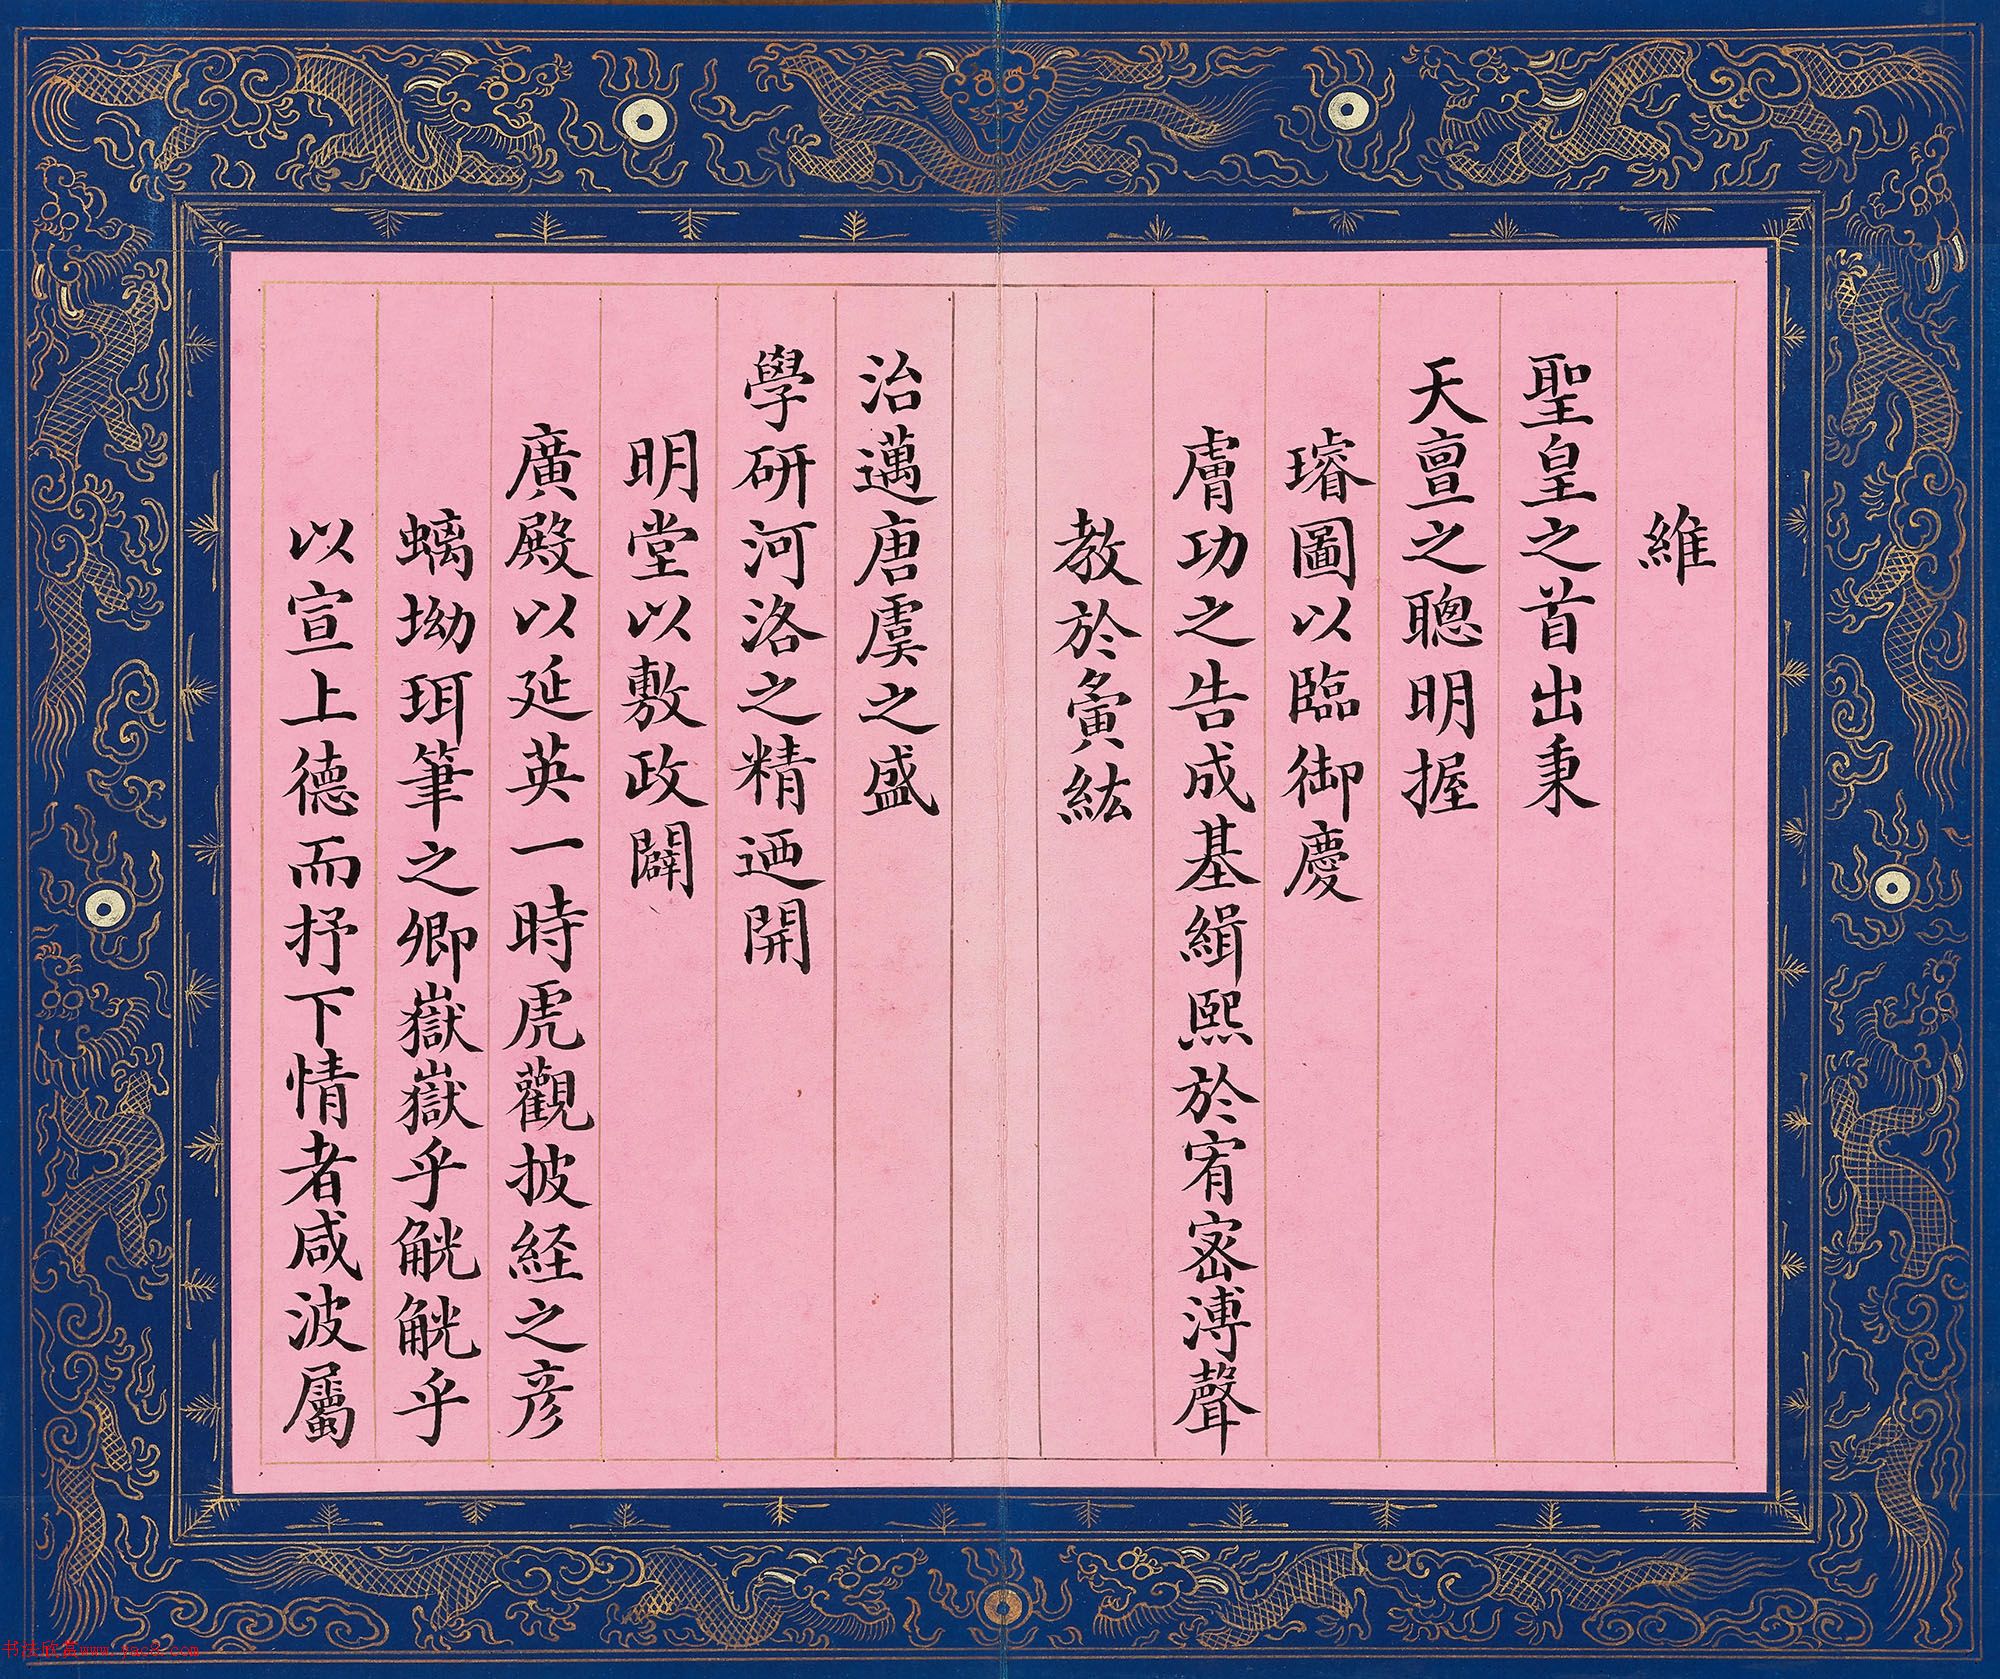 維
聖皇之首出秉
天亶之聰明握
璿圖以臨御慶
膚功之告成基緝熙於宥密溥聲
教於夤紘
治邁唐虞之盛
學研河洛之精迺開
明堂以敷政闢
廣殿以延英一時虎觀披経之彦
螭坳珥筆之卿嶽嶽乎觥觥乎
以宣上德而抒下情者咸波屬
书法欣赏www.yac8.com